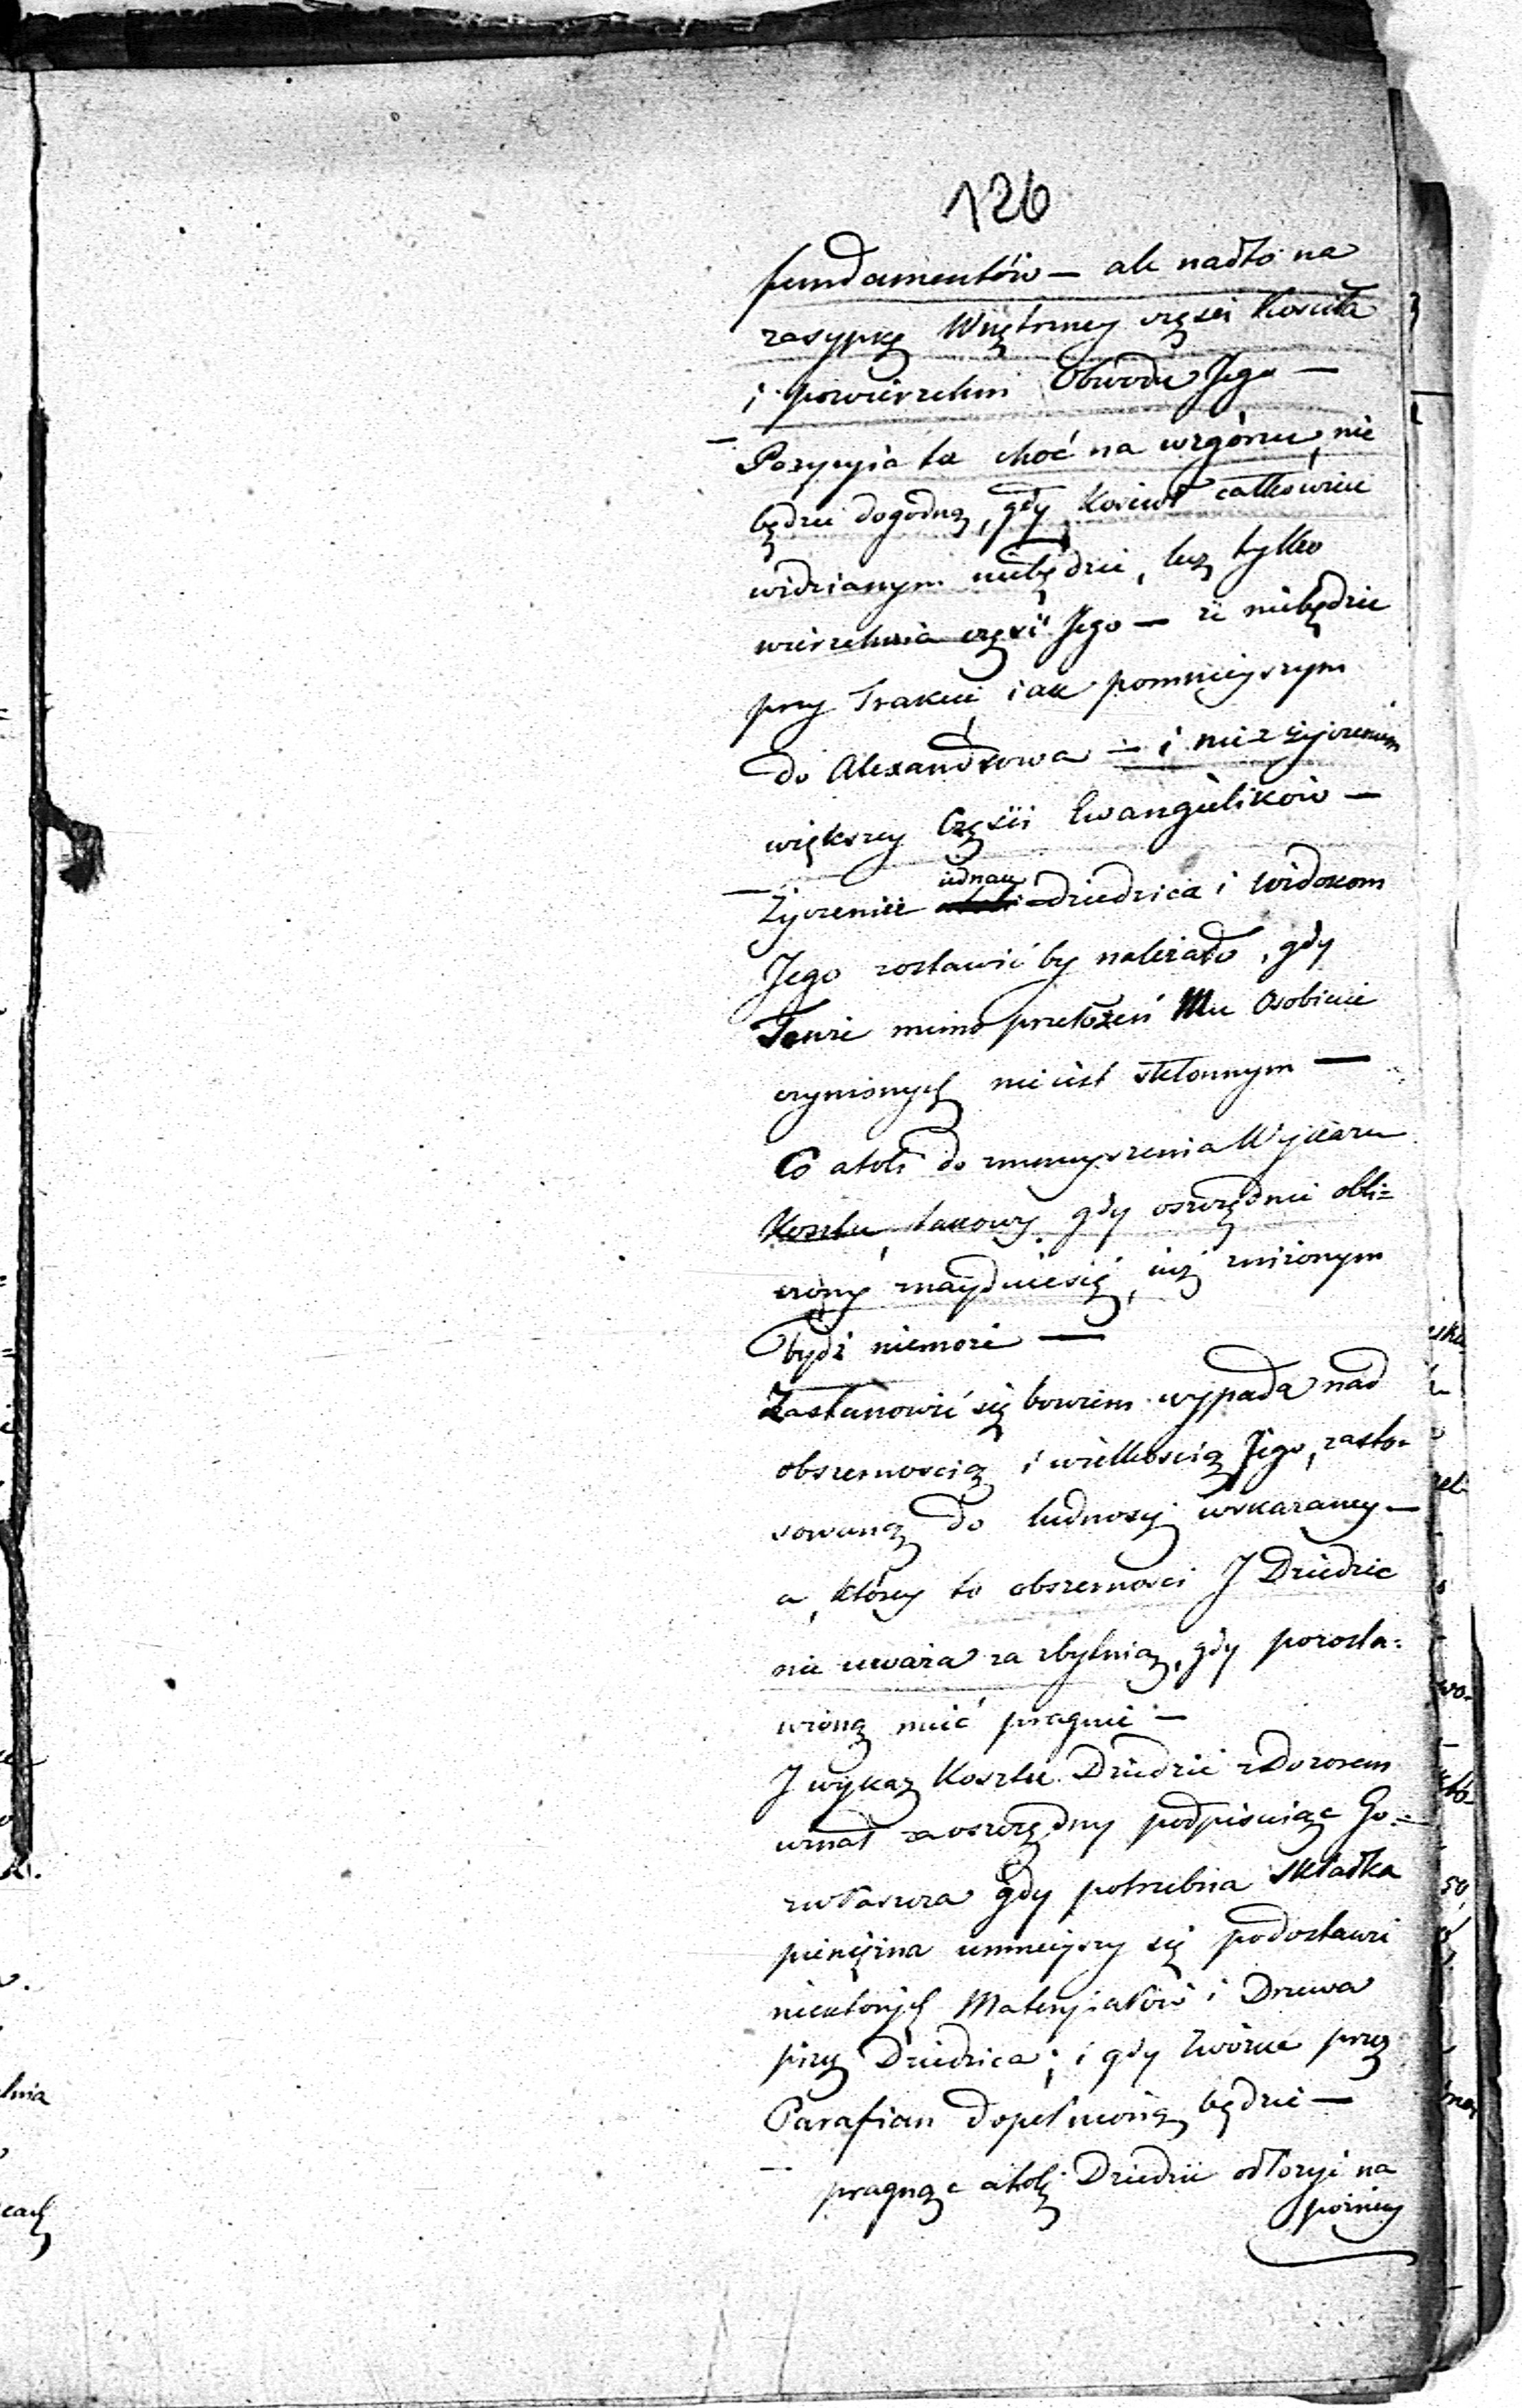 126
fundamentów — ale nadto na
zasypkę Wnętrzney części Kościoła
i powierzchni Obwodu Jego —
— Pozycyia ta choć na wzgórzu, nie
będzie dogodną, gdy Kościoł całkowicie
widzianym niebędzie, lecz tylko
wierzchnia część Jego — że niebędzie
przy Trakcie iak pomnieyszym
do Alexandrowa — i nie z życzeniem
większey Części Ewangielików —
— Życzenie iednak dziedzica i widokom
Jego zostawić by należało, gdy
Tenże mimo przełożeń Mu Osobiście
czynionych nie iest skłonnym —
Co atoli do zmnieyszenia Wykazu
Kosztu, takowy gdy oszczędnie obli=
czony znayduie się, iuż zniżonym
bydź niemoże —
Zastanowić się bowiem wypada nad
obszernością i wielkością Jego, zasto=
sowaną do ludnosci wskazaney —
a, którey to obszerności J Dziedzic
nie uważa za zbytnią, gdy pozosta=
wioną mieć pragnie —
J wykaz Kosztu Dziedzic z Dozorem
uznał za oszczędny podpisuiąc Go =
zwłaszcza gdy potrzebna składka
pieniężna umnieyszy się podostawie
niektórych Materyiałów i Drzewa
przez Dziedzica; i gdy zwózka przez
Parafian dopełnioną będzie —
— pragnąc atoli Dziedzic odłożyć na
pożniey